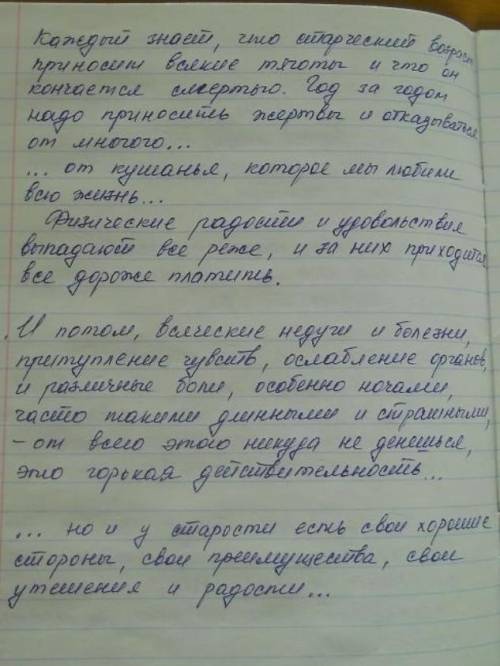 Каждый знает, что старческий возраст
приносит всякие тяготы и что он
кончается смертью. Год за годом
надо приносить жертвы и отказываться
от многого...
... от кушанья, которое мы любили
всю жизнь...
Физические радости и удовольствия
выпадают все реже, и за них приходится
все дороже платить.
И потом, всяческие недуги и болезни,
притупление чувств, ослабление органов,
и различные боли, особенно ночами,
часто такими длинными и страшными,
- от всего этого никуда не денешься,
это горькая действительность...
... но и у старости есть свои хорошие
стороны, свои преимущества, свои
утешения и радости...